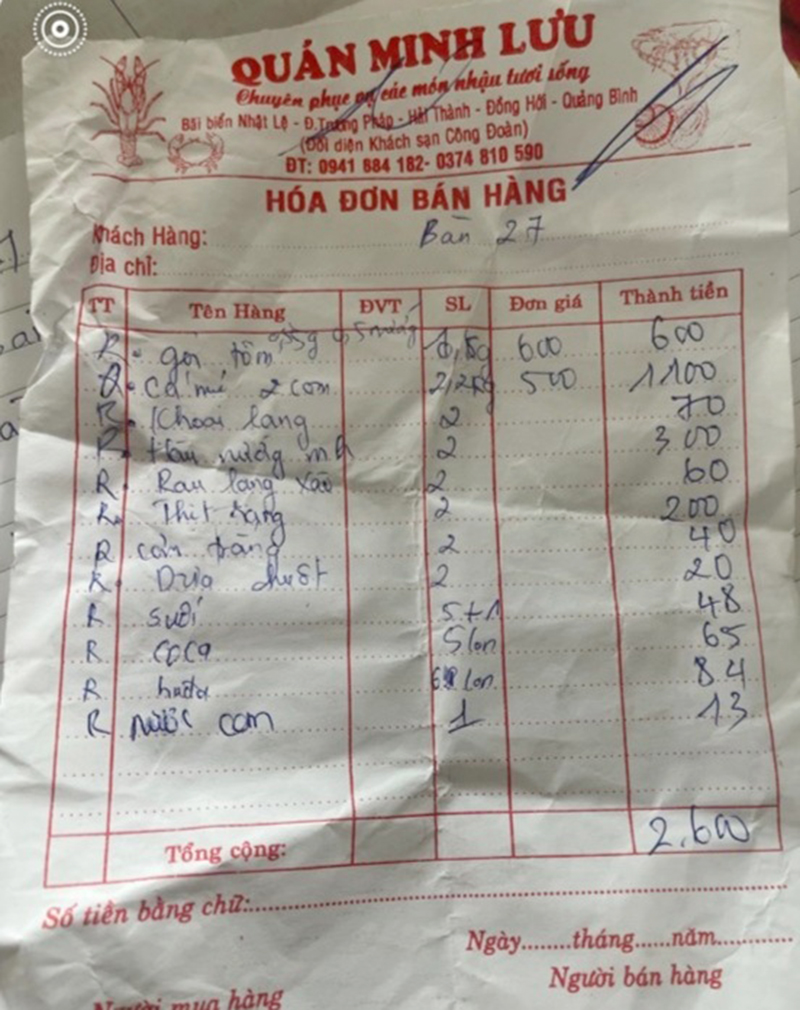 QUÁN MINH LƯU
Chuyên phục vụ các món nhậu tươi sống
Bãi biển Nhật Lệ - Đ.Trương Pháp - Hải Thành - Đồng Hới - Quảng Bình
(Đối diện Khách sạn Công Đoàn)
ĐT: 0941 884 182- 0374 810 590
HÓA ĐƠN BÁN HÀNG
Khách Hàng: Bàn 27
Địa chỉ:
TT Tên Hàng ĐVT SL Đơn giá Thành tiền
R. gỏi tôm 0,5 nướng 600 600
R. cá mú 2 con 2,2kg 500 1100
R. Khoai lang 2 70
R. Hàu nướng mỡ 2 300
R. Rau lang xào 2 60
R. Thịt rang 2 200
R cơm trắng 2 40
R. Dưa chuột 2 20
R suối 5+1 48
R coca 5 lon 65
R huda lon 84
R nước cam 1 13
Tổng cộng: 2.600
Số tiền bằng chữ:
Ngày........tháng......năm............
Người bán hàng
Người mua hàng